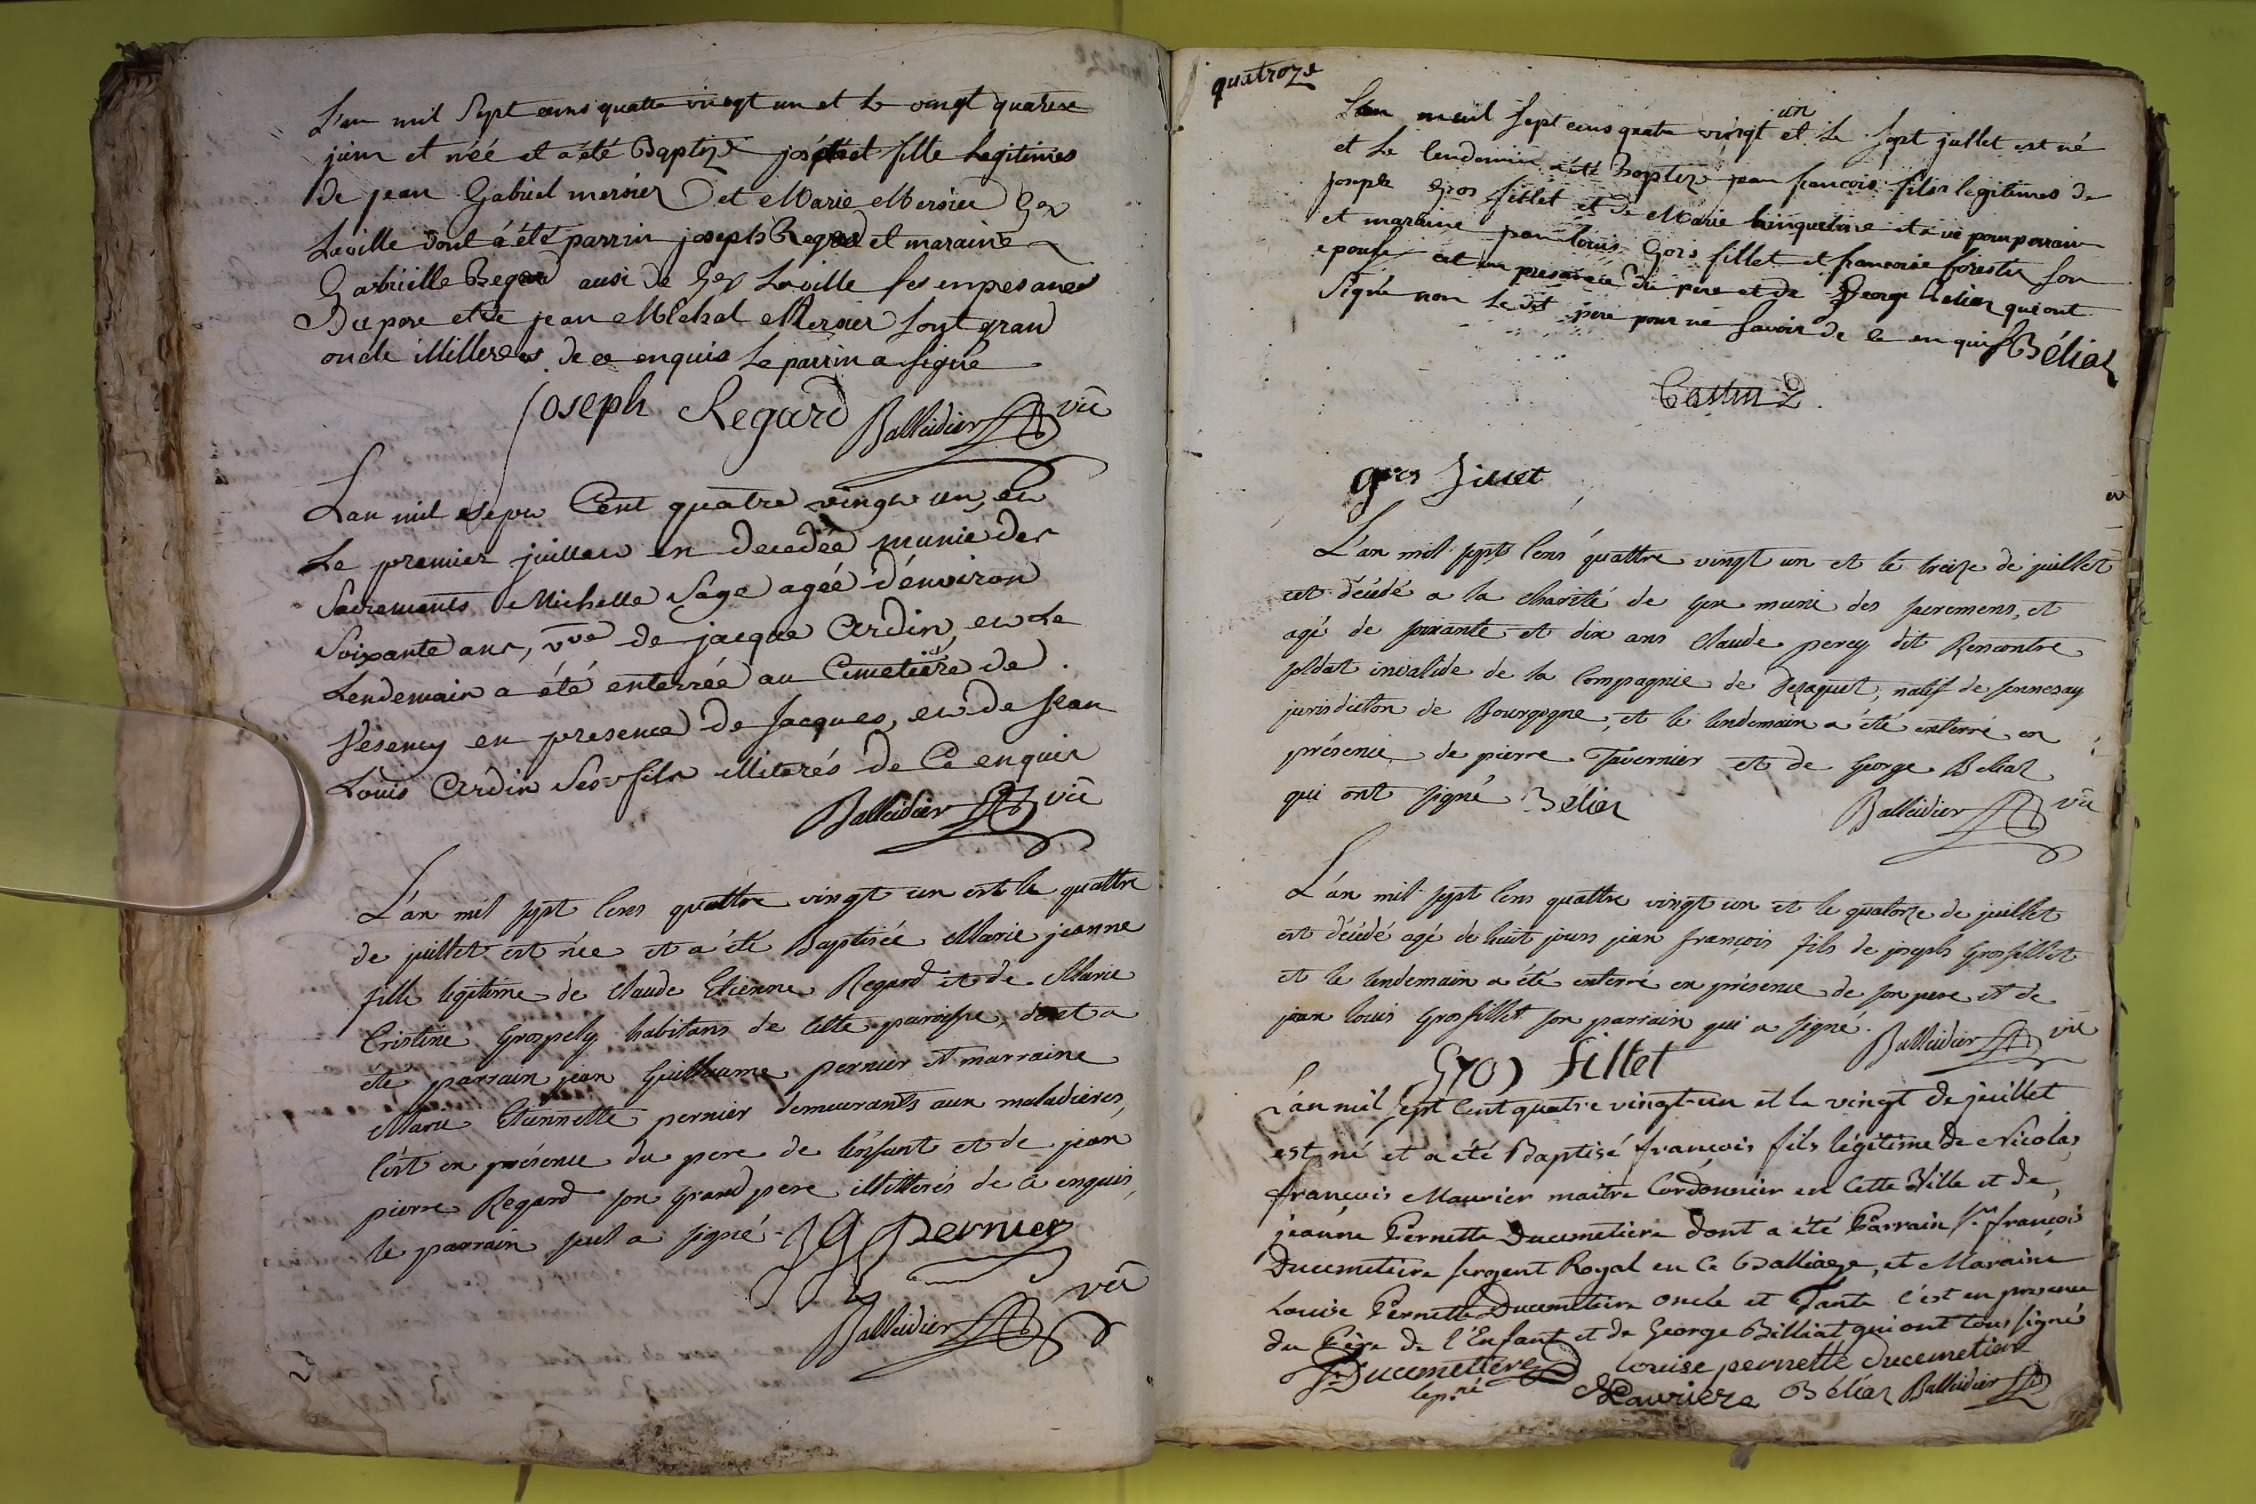 L'an mil Sept cens quatte vingt un et Le vingt quatre
juin et néé et a été Baptize josepht fille Legitimes
de jean Gabriel mersier et Marie Mersier Gex
Laville dont a été parrin joseph Regard et maraine
Gabrielle Regard ausi de Gex Laville fes enpesance
Du pere et de jean Michel Mersier sont grand
oncle illiteres de ce enquis Le parrin a signé
Joseph Regard Balleidier vic
L'an mil Sept Cent quatre vingt un, et
Le premier juillet est decedée munie des
Sacrements Michelle Sage agée d'environ
Soixante ans, vve de jacque Ardin, et Le
Lendemain a été enterrée au Cimetière de
Vesency en presence de Jacques, et de Jean
Louis Ardin Ses fils illiterés de Ce enquis
Balleidier vic
L'an mil sept Cens quattre vingt un et le quattre
de juillet est née et a été Baptisée Marie jeanne
fille légitime de Claude Etienne Regard et de Marie
Cristine Grospely habitans de cette paroisse, dont a
été parrain jean Guillaume pernier et marraine
Marie Etiennette pernier demeurants aux maladieres,
C'est en présence du pere de l'enfant et de jean
pierre Regard son grand pere illitterés de ce enquis,
le parrain seul a signé JG Pernier
Balleidier vic
quatroze
L'an meil sept cens quatre vingt un et Le sept jullet est né
et Le lendemin a été Baptize jean francois fils legitimes de
joseph Gros fillet et de Marie et a ùe pour parrain
et maraine jean louis Gros fillet et francoise forestier son
epouse cet en presance du pere et de George Beliaz qui ont
Signé non Le dit pere pour ne savoir de ce enquis Béliaz
gros fillet
L'an mil sept Cens quattre vingt un et le treize de juillet
est décédé a la charité de gex muni des sacremens, et
agé de soixante et dix ans Claude percy dit Rencontre
soldat invalide de la Compagnie de Dezaguet, natif de sennesay
jurisdiction de Bourgogne, et le lendemain a été enterré en
présence de pierre Tavernier et de George Beliaz
qui ont signé Béliaz Balleidier vic
L'an mil sept Cens quattre vingt un et le quatorze de juillet
est décédé agé de huit jours jean françois fils de joseph Grosfillet
et le lendemain a été enterré en présence de son pere et de
jean louis Grosfillet son parrain qui a signé. Balleidier vic
Gros fillet
L'an mil sept Cent quatre vingt-un et le vingt de juillet
est né et a été Baptisé françois fils légitime de Nicolas
françois Maurier maitre Cordonnier en cette Ville et de
jeanne Pernette Ducimetiere dont a été Parrain Sr. françois
Ducimetiere sergent Royal en ce Balliage, et Maraine
Louise Pernette Ducimetiere oncle et Tante c'est en presence
du Père de l'Enfant et de George Billiat qui ont tous signé
F: Ducimetiere louise pernette ducemetiere
Mauriera Béliaz Balleidier